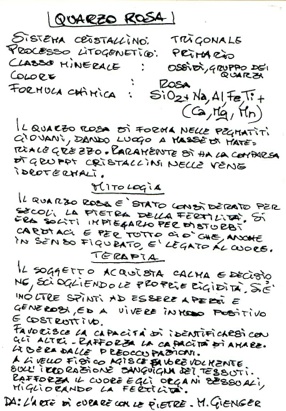 QUARZO ROSA
SISTEMA CRISTALLINO: TRIGONALE
PROCESSO LITOGENETICO: PRIMARIO
CLASSE MINERALE : OSSIDI, GRUPPO DEL
QUARZO
COLORE : ROSA
FORMULA CHIMICA : SiO2 + Na, Al Fe Ti +
(Ca, Mg, Mn)
IL QUARZO ROSA SI FORMA NELLE PEGMATITI
GIOVANI, DANDO LUOGO A MASSE DI MATE-
RIALE GREZZO. RARAMENTE SI HA LA COMPARSA
DI GRUPPI CRISTALLINI NELLE VENE
IDROTERMALI.
MITOLOGIA
IL QUARZO ROSA E' STATO CONSIDERATO PER
SECOLI LA PIETRA DELLA FERTILITÀ. SI
ERA SOLITI IMPIEGARLO PER DISTURBI
CARDIACI E PER TUTTO CIO' CHE, ANCHE
IN SENSO FIGURATO, E' LEGATO AL CUORE.
TERAPIA
IL SOGGETTO ACQUISTA CALMA E DECISIO
NE, SCIOGLIENDO LE PROPRIE RIGIDITÀ. SI E'
INOLTRE SPINTI AD ESSERE APERTI E
GENEROSI, ED A VIVERE IN MODO POSITIVO
E COSTRUTTIVO.
FAVORISCE LA CAPACITÀ DI IDENTIFICARSI CON
GLI ALTRI. RAFFORZA LA CAPACITÀ DI AMARE.
LIBERA DALLE PREOCCUPAZIONI.
A LIVELLO FISICO AGISCE FAVOREVOLMENTE
SULL'IRRORAZIONE SANGUIGNA DEI TESSUTI.
RAFFORZA IL CUORE E GLI ORGANI SESSUALI,
MIGLIORANDO LA FERTILITÀ.
DA: L'ARTE DI CURARE CON LE PIETRE. M. GIENGER